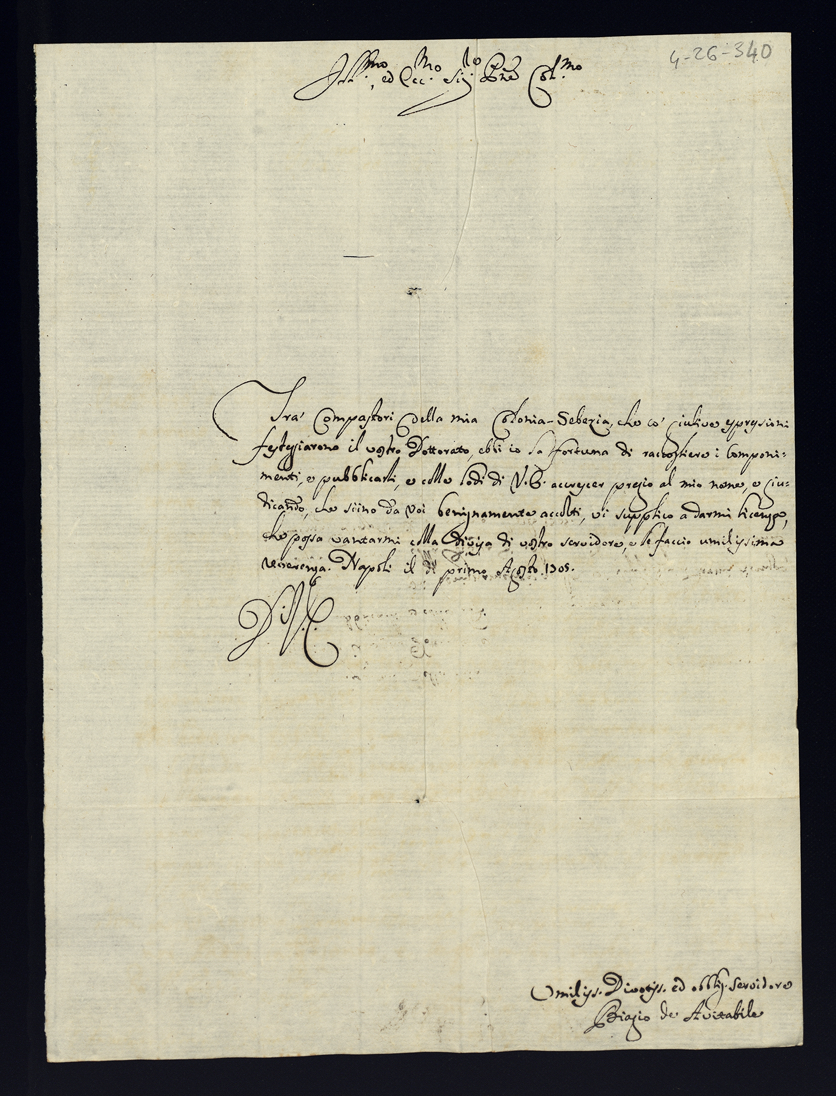 4-26-340
Ill.mo, ed Ecc.mo Sig.re P̃ne Col.mo
Tra' Compastori della mia Colonia-Sebezia, che co' giulive espressioni
festeggiarono il vostro Dottorato, ebbi io la fortuna di raccogliere i componi=
menti, e pubblicarli, e colle lodi di V.E. accrescer pregio al mio nome, e giu=
dicando, che siino da voi benignamente accolti, vi supplico a darmi licenza,
che possa vantarmi colla divisa di vostro servidore, e le faccio umilissima
reverenza. Napoli il dì primo Agosto 1705.
Di V.E.
Umiliss. Divotiss. ed obblig. servidore
Biagio de Avitabile